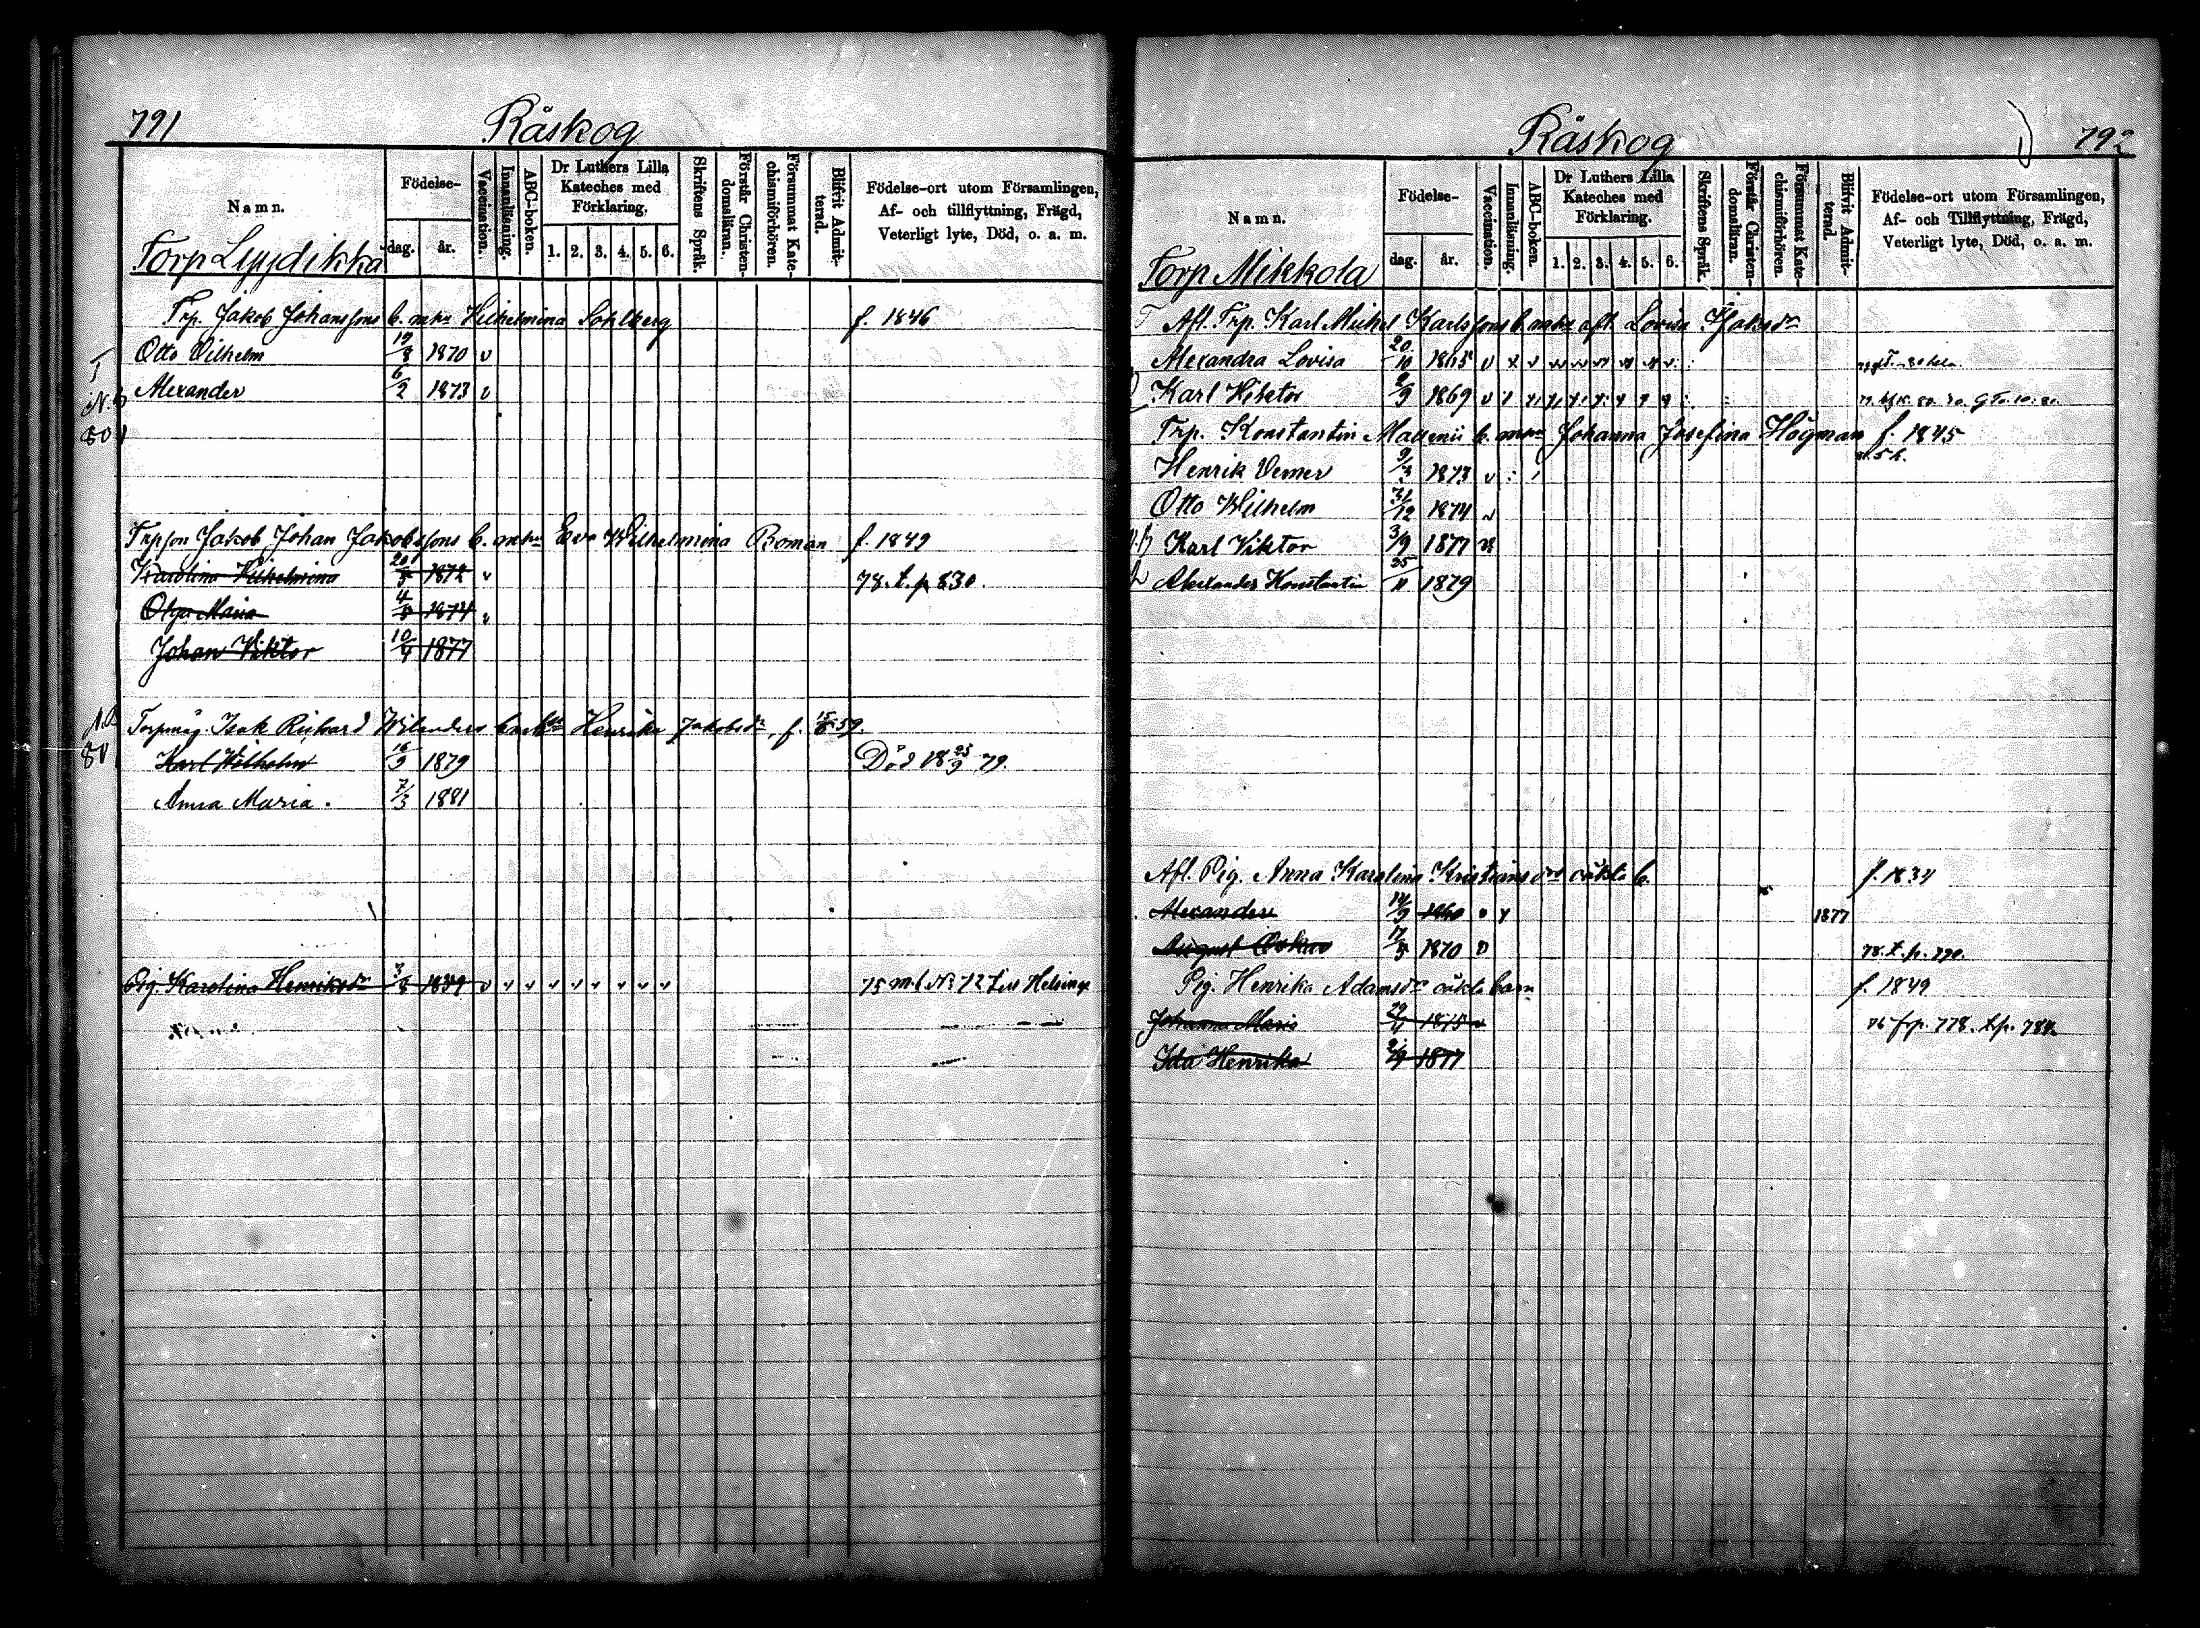 791
Råskog
Namn.
Födelse-
dag.
år.
Vaccination.
Innanläsning.
ABC-boken.
Dr Luthers Lilla
Kateches med
Förklaring.
1. 2. 3. 4. 5. 6.
Skriftens Språk.
Förstår Christen-
domsläran.
Försummat Kate-
chismiförhören.
Blifvit Admit-
terad.
Födelse-ort utom Församlingen,
Af- och tillflyttning, Frägd,
Veterligt lyte, Död, o. a. m.
Torp
Trp. Jakob Johanssons b. m. h. Vilhelmina Sohlberg f. 1846
Otto Vilhelm 19/8 1870 v
Alexander 6/2 1873 v
Trpson Jakob Johan Jakobssons b. m. h. Eva Wilhelmina Boman f. 1849
Karolina Vilhelmina 1872 v 78. t. p 830.
Olga Maria 1874 v
Johan Viktor 10/9 1877
Isak Richard Henrika Jakobsdr, f. 59.
Karl Wilhelm 16/9 1879 Död 18 25/9 79.
Anna Maria. 7/3 1881
Pig. Karolina Henriksdr 3/8 v v v v v v v v v 75 m. b. No 72 till Helsingf
792
Råskog
Namn.
Födelse-
dag.
år.
Vaccination.
Innanläsning.
ABC-boken.
Dr Luthers Lilla
Kateches med
Förklaring.
1. 2. 3. 4. 5. 6.
Skriftens Språk.
Förstår Christen-
domsläran.
Försummat Kate-
chismiförhören.
Blifvit Admit-
terad.
Födelse-ort utom Församlingen,
Af- och Tillflyttning, Frägd,
Veterligt lyte, Död, o. a. m.
Torp Mikkola
Afl. Trp. Karl Mikel Karlssons b. m. h. afl. Lovisa
Alexandra Lovisa 20/10 1865
Karl Viktor 1869
Trp. Konstantin b. m. h. Johanna Josefina Högman f. 1845
Henrik Verner 9/3 1873 v
Otto Wilhelm 31/12 1874 v
Karl Viktor 3/9 1877
Alexander Konstantin 25/11 1879
Afl. Pig. Anna Karolina Kristiansdrs oäkta b. f. 1834
Alexander 14/9 1860 1877
August Oskar 17/8 1870 v 78. t. p. 790.
Pig. Henrika Adamsdrs oäkta barn f. 1849
Johanna Maria 1875 76 frp. 778. t. p. 784
Ida Henrika 1877